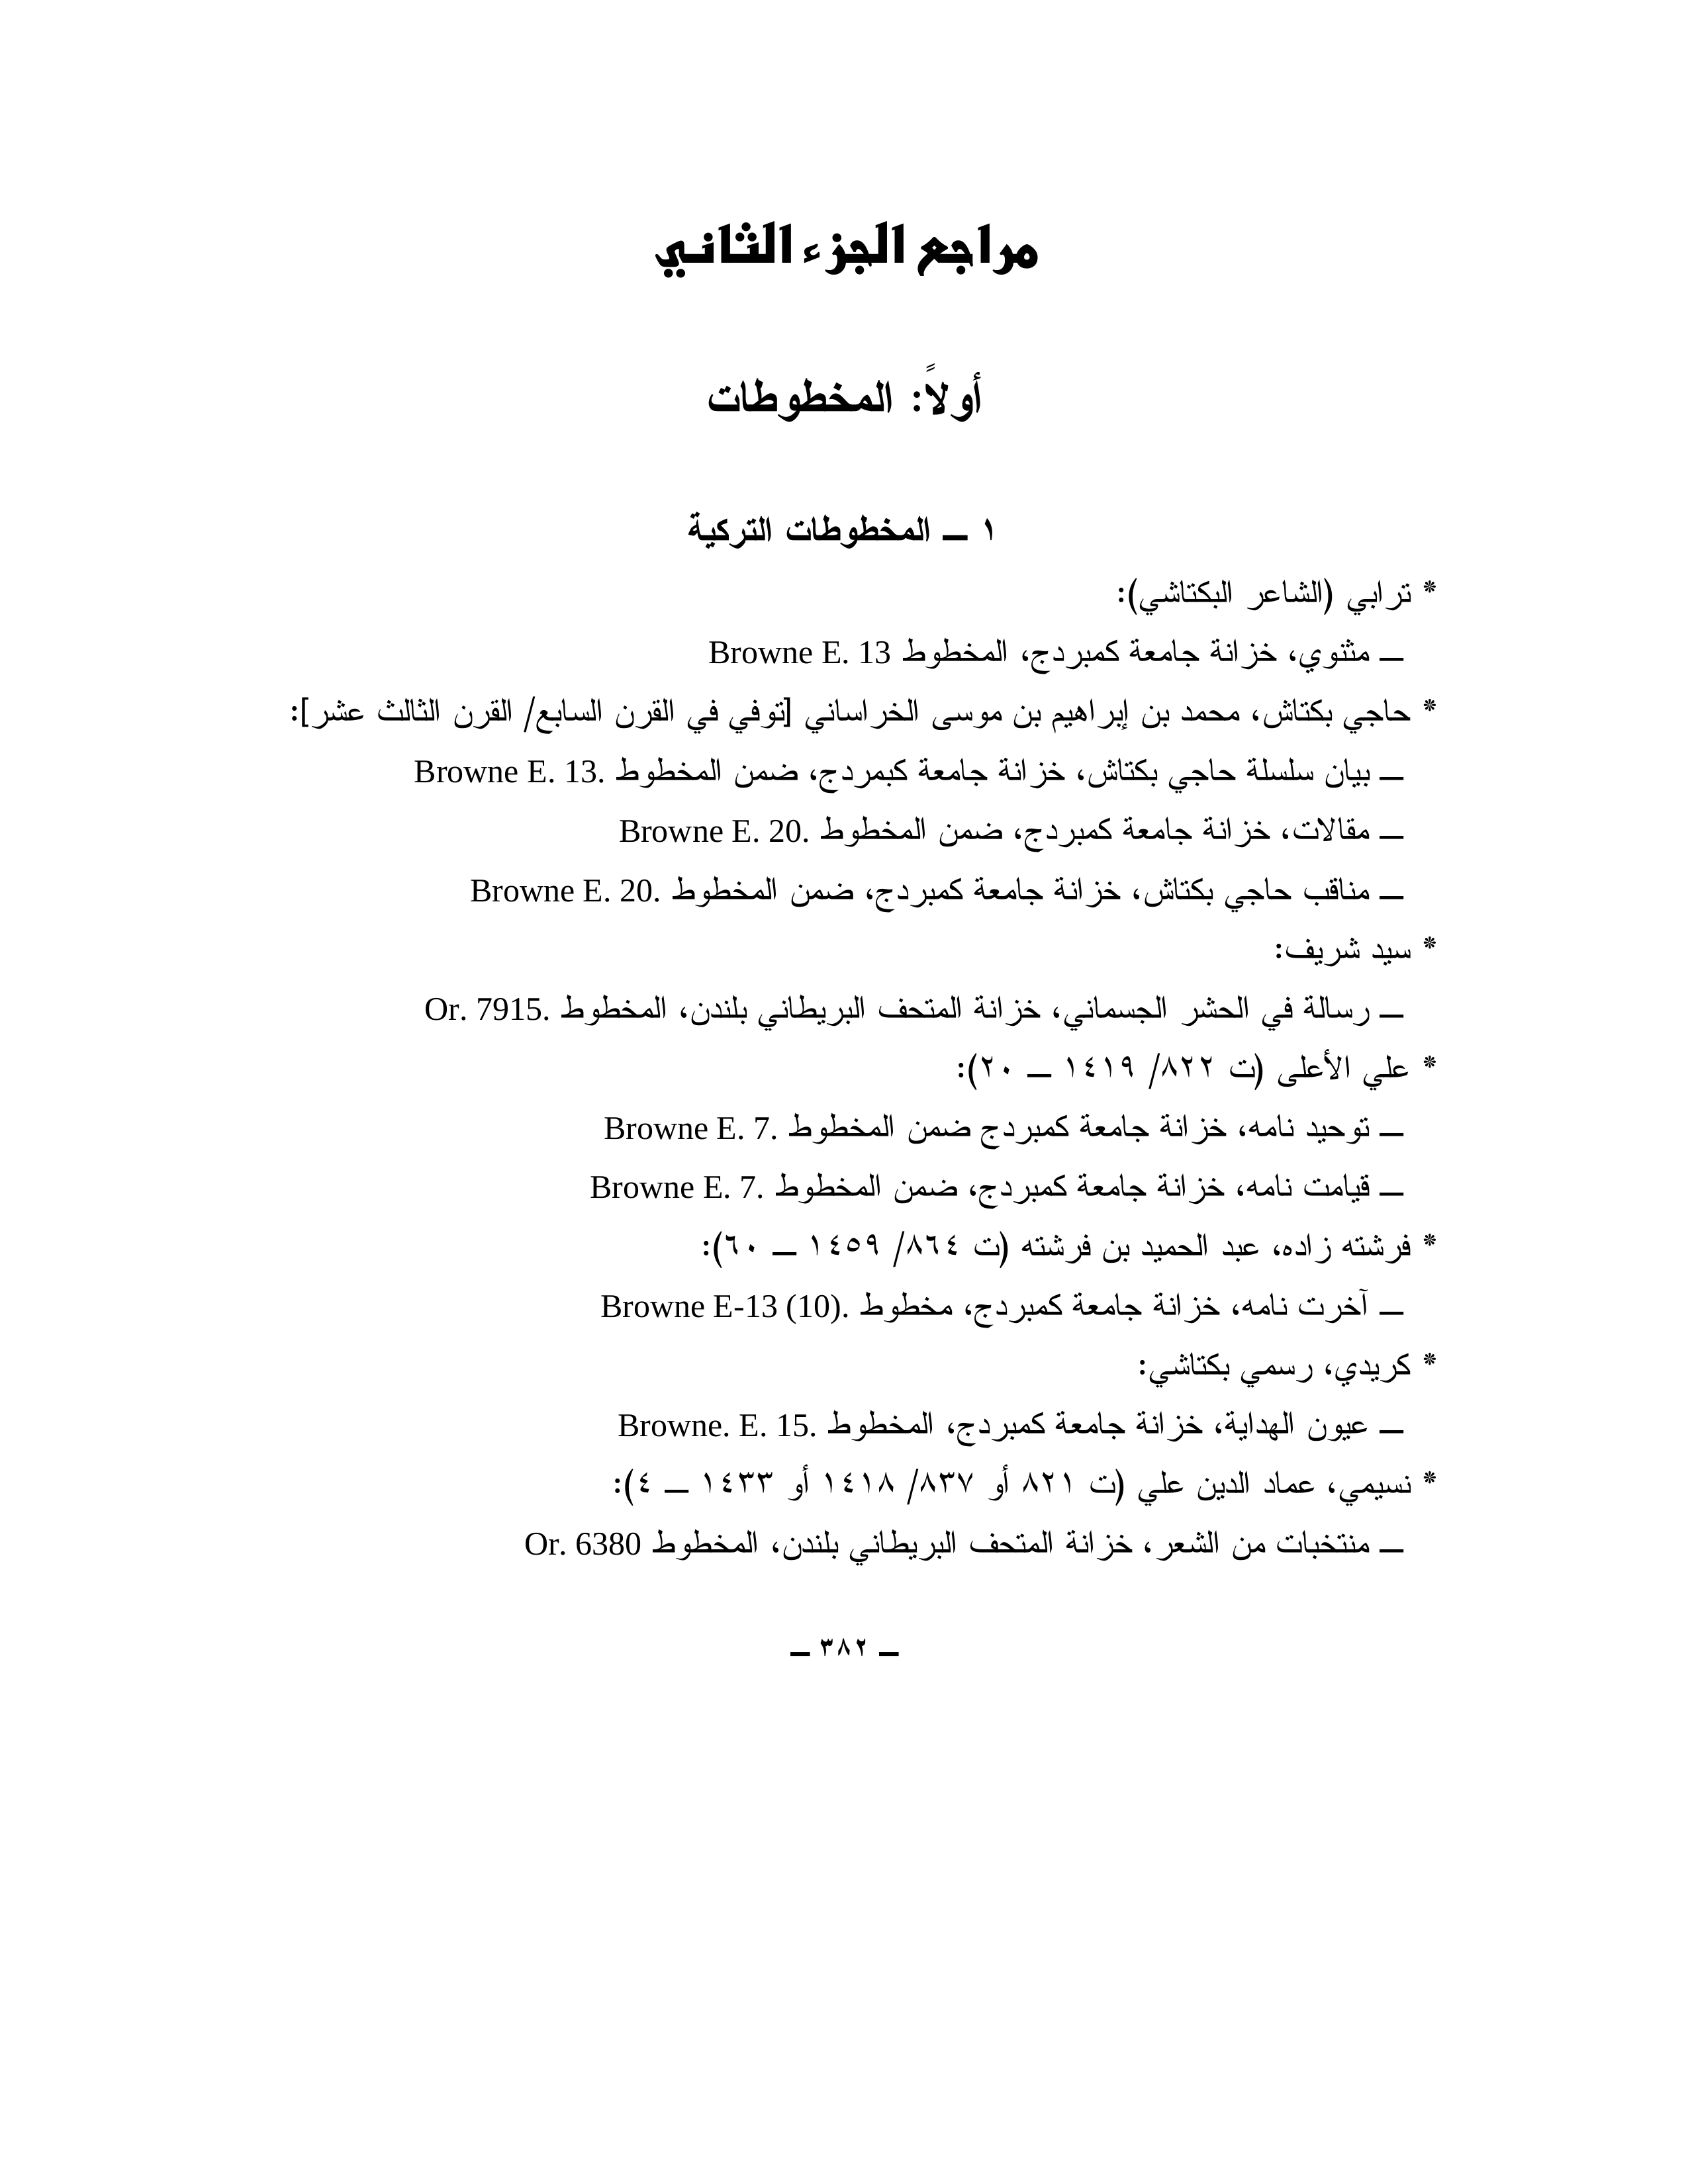 مراجع الجزء الثاني
أولاً: المخطوطات
١ ــ المخطوطات التركية
* ترابي (الشاعر البكتاشي):
ــ مثنوي، خزانة جامعة كمبردج، المخطوط Browne E. 13
* حاجي بكتاش، محمد بن إبراهيم بن موسى الخراساني [توفي في القرن السابع/ القرن الثالث عشر]:
ــ بيان سلسلة حاجي بكتاش، خزانة جامعة كبمردج، ضمن المخطوط Browne E. 13.
ــ مقالات، خزانة جامعة كمبردج، ضمن المخطوط Browne E. 20.
ــ مناقب حاجي بكتاش، خزانة جامعة كمبردج، ضمن المخطوط Browne E. 20.
* سيد شريف:
ــ رسالة في الحشر الجسماني، خزانة المتحف البريطاني بلندن، المخطوط Or. 7915.
* علي الأعلى (ت ٨٢٢/ ١٤١٩ ــ ٢٠):
ــ توحيد نامه، خزانة جامعة كمبردج ضمن المخطوط Browne E. 7.
ــ قيامت نامه، خزانة جامعة كمبردج، ضمن المخطوط Browne E. 7.
* فرشته زاده، عبد الحميد بن فرشته (ت ٨٦٤/ ١٤٥٩ ــ ٦٠):
ــ آخرت نامه، خزانة جامعة كمبردج، مخطوط Browne E-13 (10).
* كريدي، رسمي بكتاشي:
ــ عيون الهداية، خزانة جامعة كمبردج، المخطوط Browne. E. 15.
* نسيمي، عماد الدين علي (ت ٨٢١ أو ٨٣٧/ ١٤١٨ أو ١٤٣٣ ــ ٤):
ــ منتخبات من الشعر، خزانة المتحف البريطاني بلندن، المخطوط Or. 6380
ــ ٣٨٢ ــ